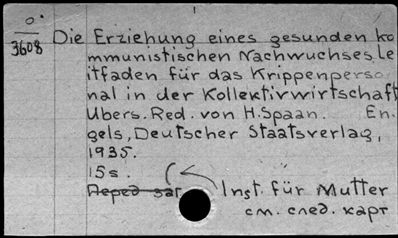 О.
3608
Die Erziehung eines gesunden ko
mmunistischen Nachwuchses Le
itfaden für das Krippenperso
nal in der Kollektivwirtschaft
Ubers. Red. von H. Spaan. En.
gels, Deutscher Staatsverlag,
1935.
15 s.
Перед заг Inst. für Mutter
см. след. карт